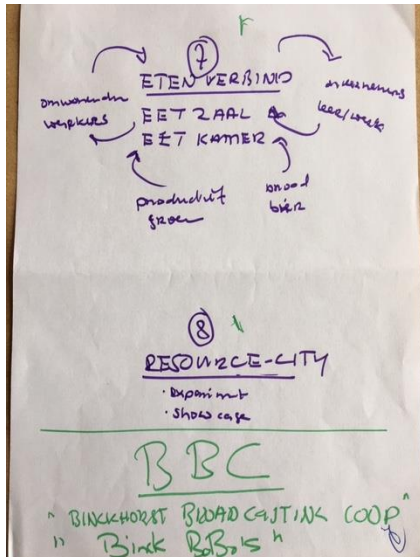 7
ETEN VERBIND
omwonenden
werkers
ondernemers
leer/werk
EET ZAAL
EET KAMER
productief
groen
brood
bier
8
RESOURCE-CITY
· Experiment
· Showcase
BBC
" BINCKHORST BROADCASTING COOP"
" Binck BoBs "